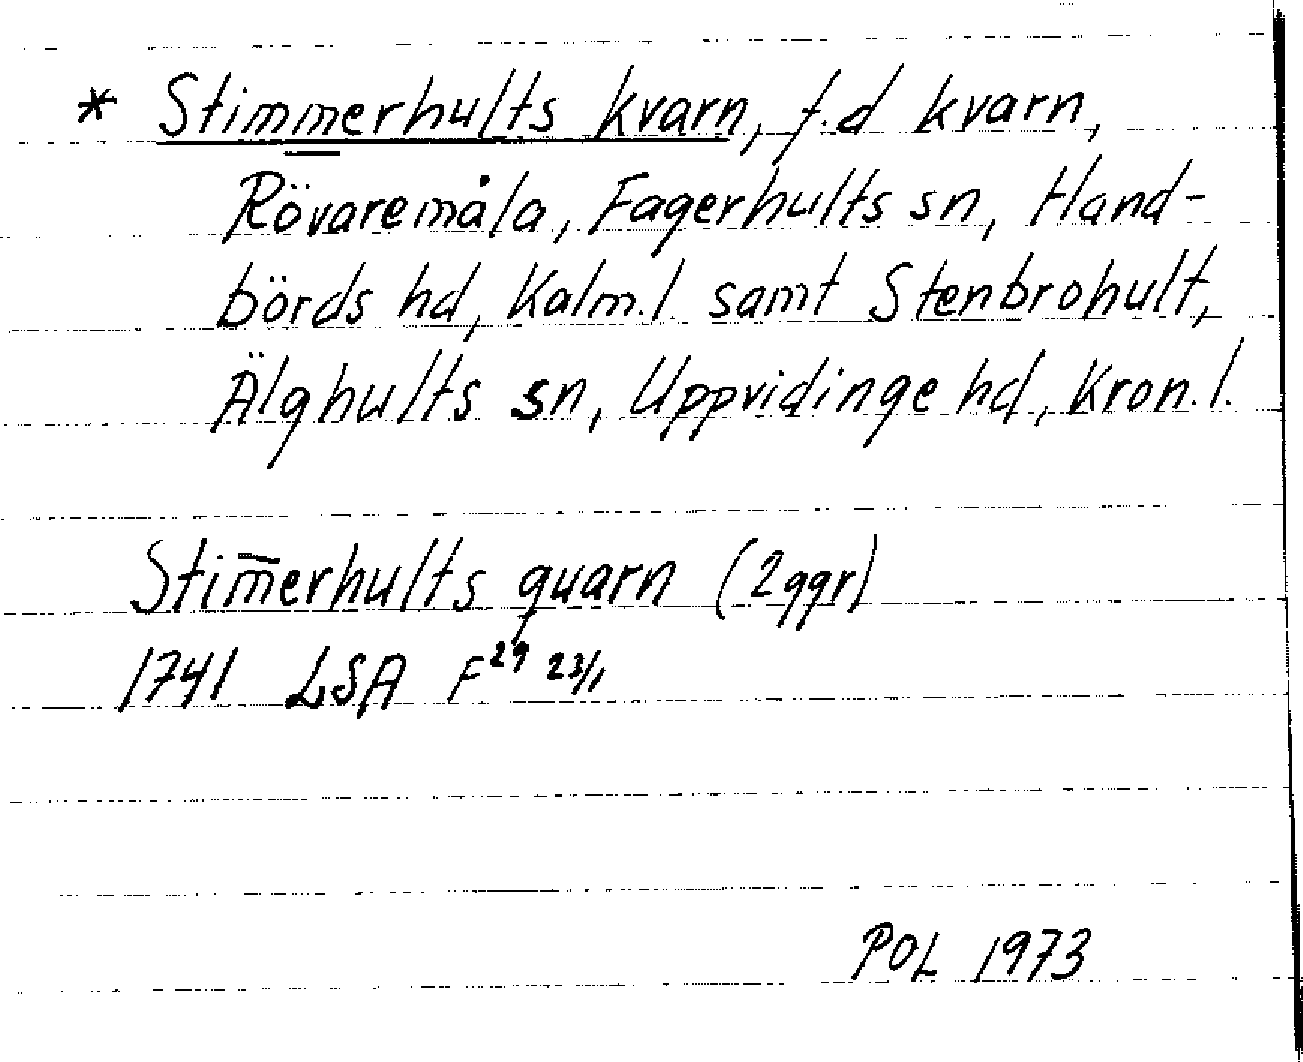 * Stimmerhults kvarn, f.d kvarn,
Rövaremåla, Fagerhults sn, Hand-
börds hd, Kalm.l samt Stenbrohult,
Älghults sn, Uppvidinge hd, Kron.l.
Stim̅erhults quarn (2ggr)
1741 LSA F²⁹ 23/1
POL 1973